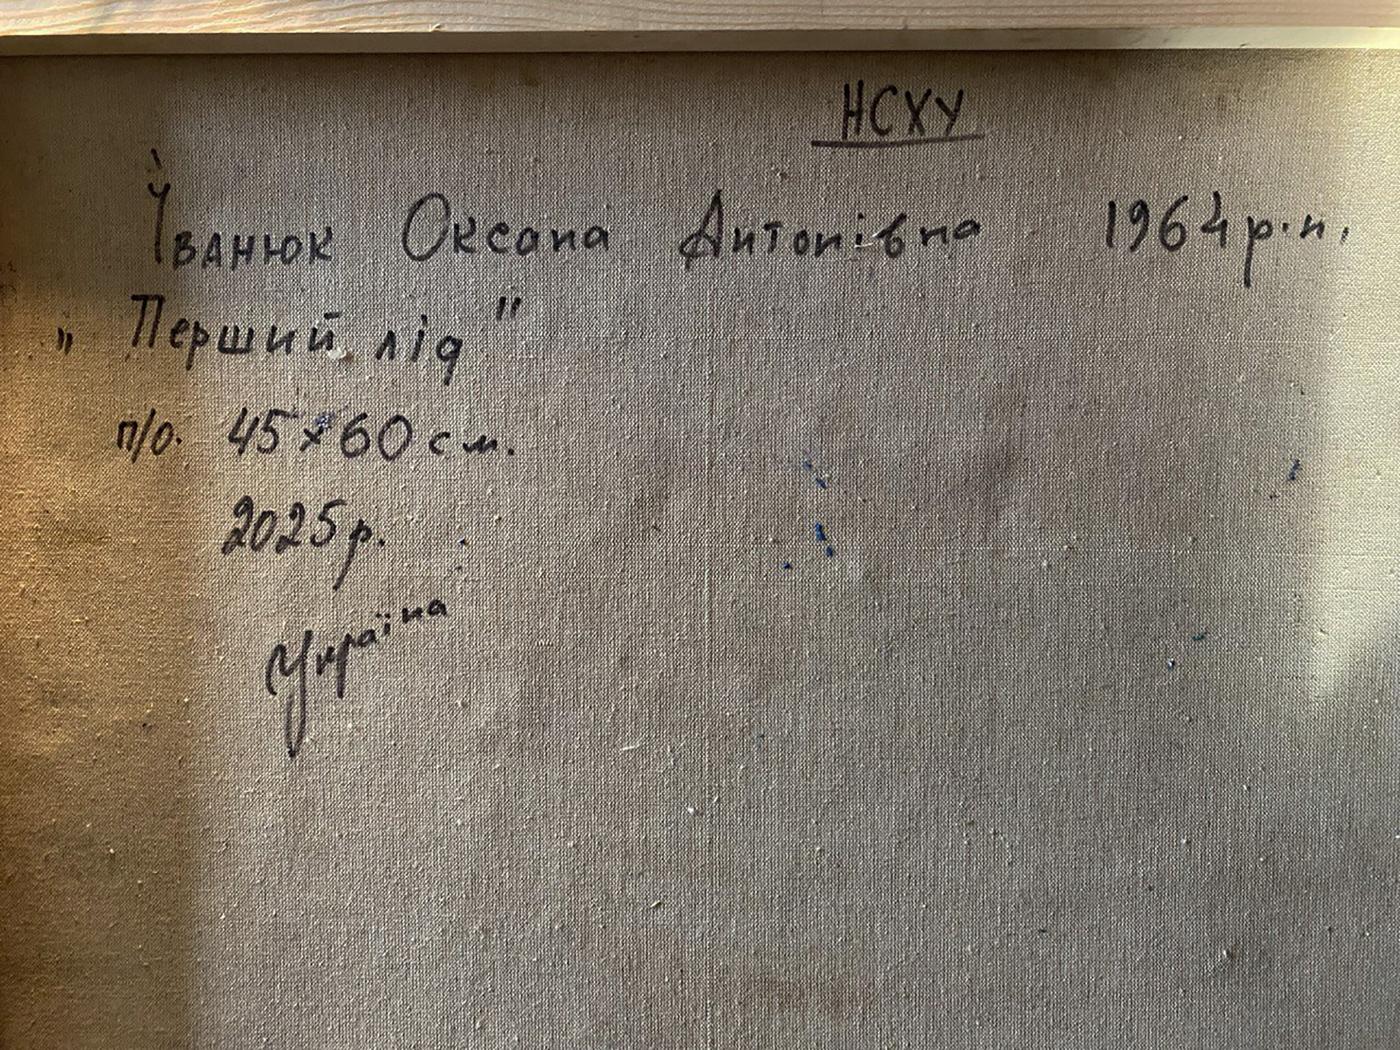 НСХУ
Іванюк Оксана Антонівна 1964 р.н.
„Перший лід"
п/о. 45x60 см.
2025р.
Україна